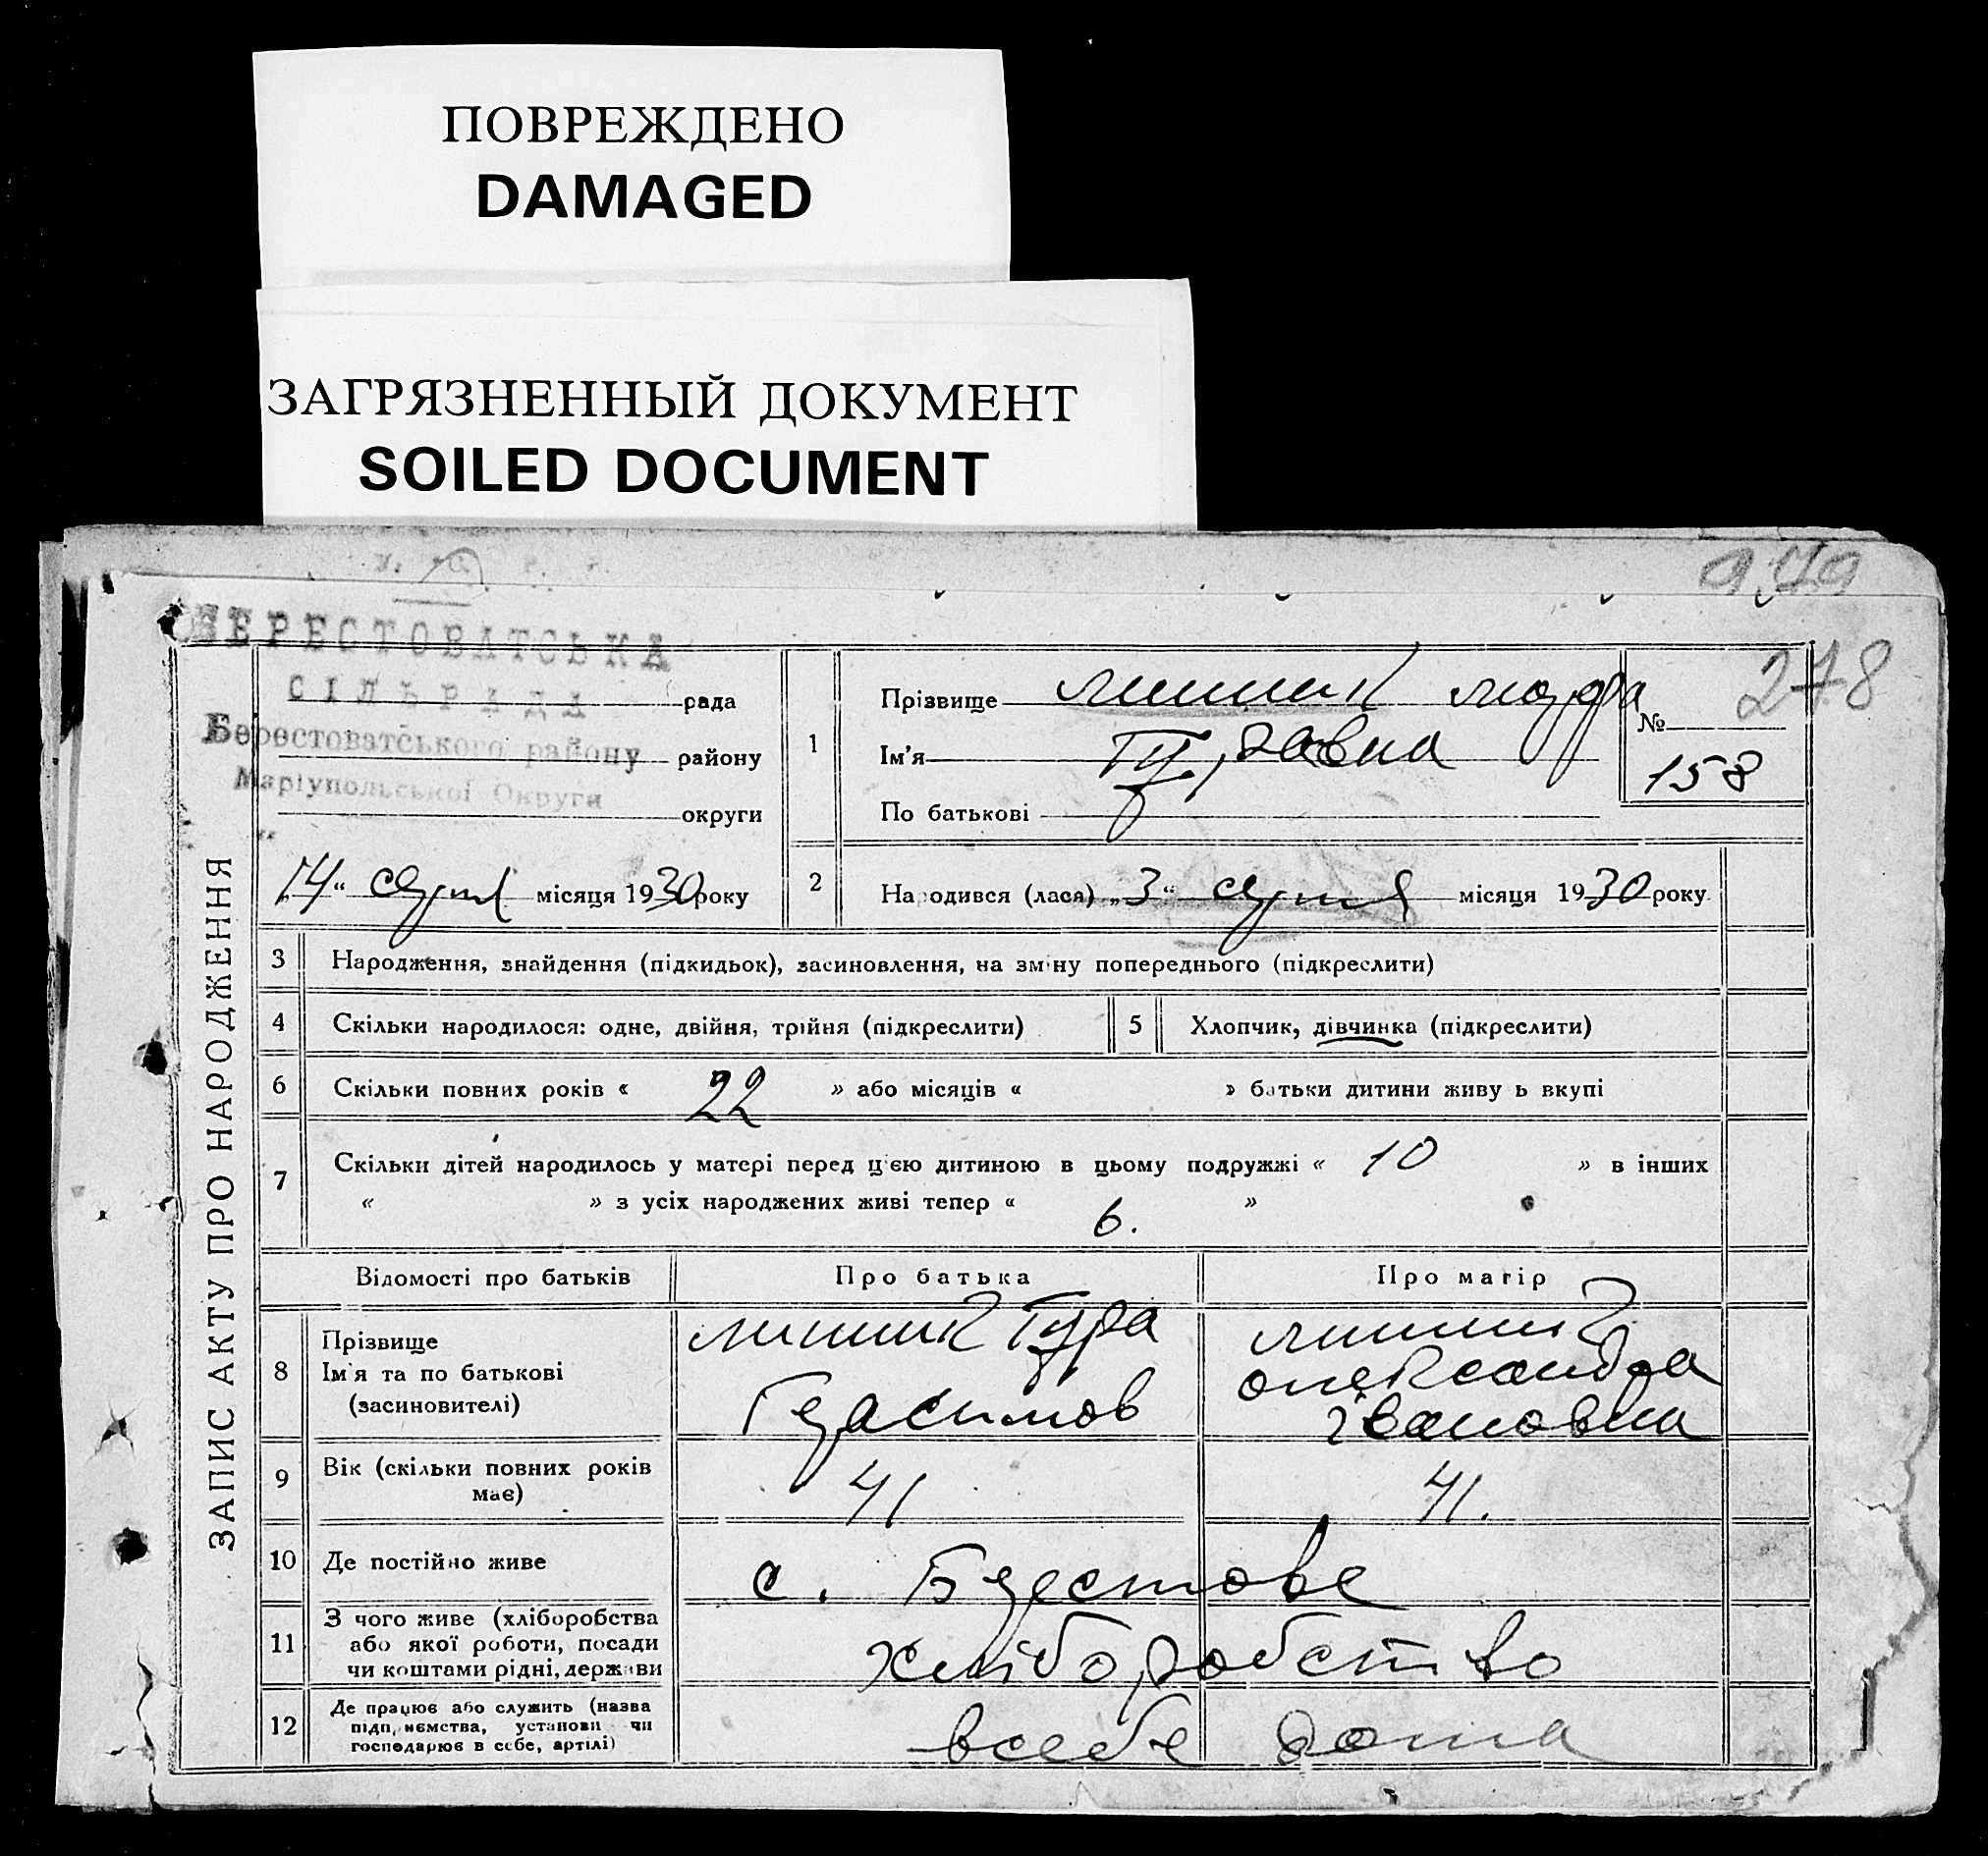 ПОВРЕЖДЕНО
DAMAGED
ЗАГРЯЗНЕННЫЙ ДОКУМЕНТ
SOILED DOCUMENT
БЕРЕСТОВАТСЬКА
СІЛЬРАДА рада
Берестоватського району району
Маріупольської Округи
округи
278
1 Прізвище
Ім'я Гуравна
По батькові
№
158
14 місяця 1930 року
2 Народився (лася) „3“ місяця 1930 року
ЗАПИС АКТУ ПРО НАРОДЖЕННЯ
3 Народження, знайдення (підкидьок), засиновлення, на зміну попереднього (підкреслити)
4 Скільки народилося: одне, двійня, трійня (підкреслити) 5 Хлопчик, дівчинка (підкреслити)
6 Скільки повних років « 22 » або місяців « » батьки дитини живуть вкупі
7 Скільки дітей народилось у матері перед цією дитиною в цьому подружжі « 10 » в інших
« » з усіх народжених живі тепер « 6. »
Відомості про батьків Про батька Про матір
8 Прізвище
Ім'я та по батькові
(засиновителі)
Гура
Герасимов
Олександра
Івановна
9 Вік (скільки повних років
має) 41 41.
10 Де постійно живе с. Берестове
11 З чого живе (хліборобства
або якої роботи, посади
чи коштами рідні, держави
хліборобство
12 Де працює або служить (назва
підприємства, установи чи
господарює в себе, артілі)
в себе дома